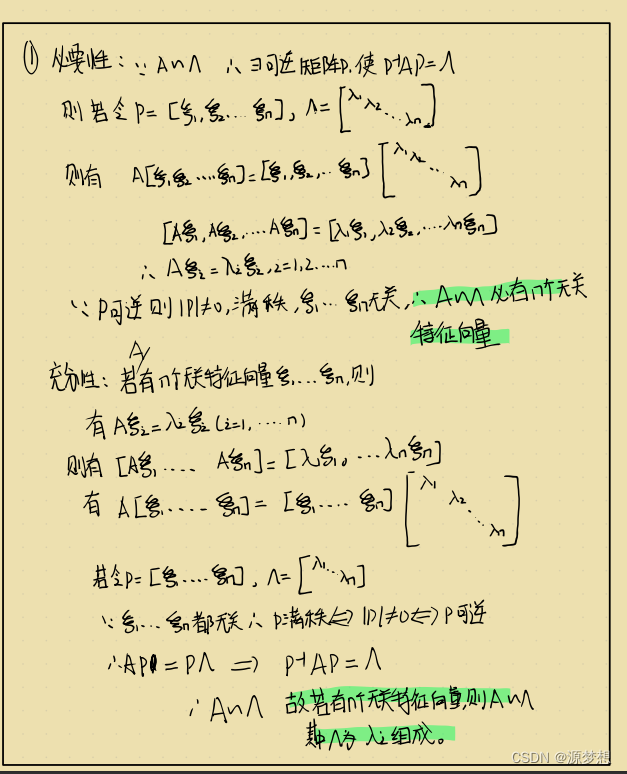 ① 必要性: ∵ A∽Λ ∴ ∃可逆矩阵P.使 P⁻¹AP=Λ
则若令P=[ξ₁,ξ₂…ξₙ], Λ=[λ₁ λ₂ … λₙ]
则有 A[ξ₁,ξ₂…ξₙ]=[ξ₁,ξ₂,…ξₙ][λ₁ λ₂ … λₙ]
[Aξ₁,Aξ₂,…Aξₙ]=[λ₁ξ₁,λ₂ξ₂,…λₙξₙ]
∴ Aξᵢ=λᵢξᵢ,i=1,2…n
∵ P可逆则|P|≠0,满秩,ξ₁…ξₙ无关,∴A∽Λ必有n个无关
特征向量
充分性: 若A有n个无关特征向量ξ₁…ξₙ,则
有Aξᵢ=λᵢξᵢ(i=1,…n)
则有 [Aξ₁… Aξₙ]=[λ₁ξ₁。…λₙξₙ]
有 A[ξ₁…ξₙ]=[ξ₁…ξₙ][λ₁ λ₂ … λₙ]
若令P=[ξ₁…ξₙ], Λ=[λ₁…λₙ]
∵ ξ₁…ξₙ都无关∴P满秩⇔|P|≠0⇔P可逆
∴AP=PΛ ⇒ P⁻¹AP=Λ
∴A∽Λ 故若有n个无关特征向量,则A∽Λ
其中Λ为λᵢ组成。
CSDN @源梦想